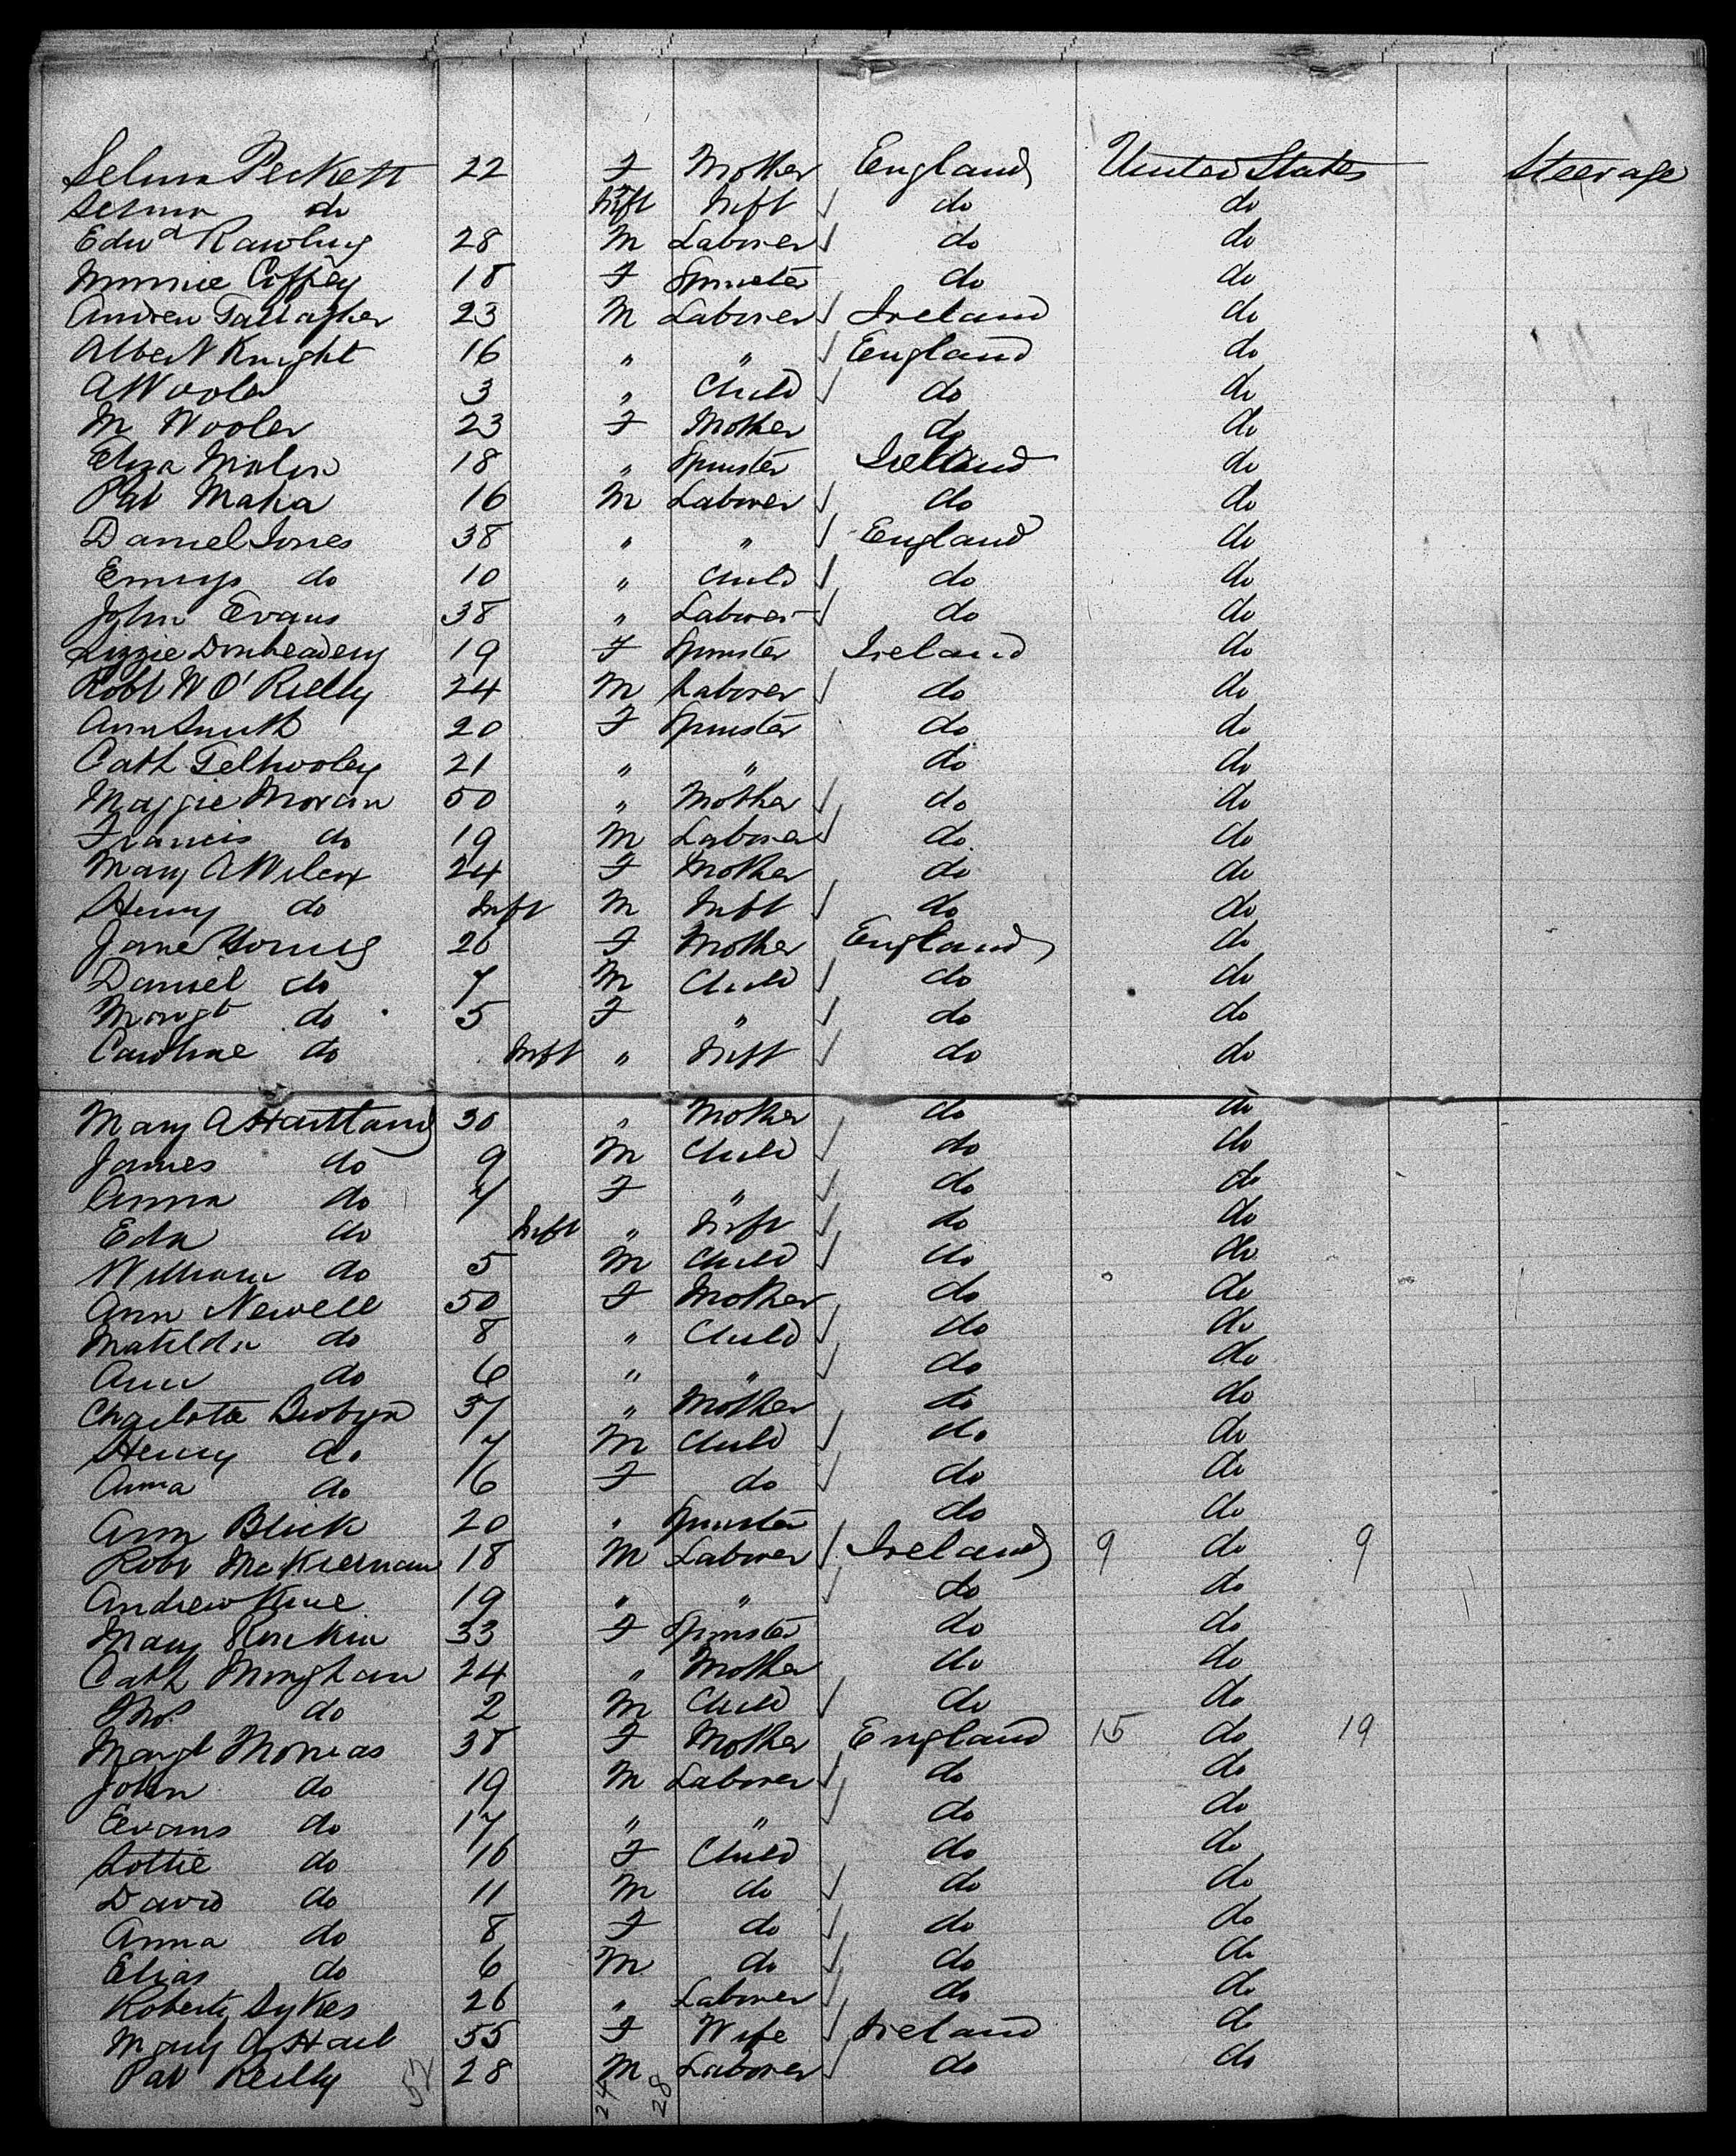 Selma Peckett 22 F Mother England United States Steerage
Selma do Inft Inft do do
Edwd Rawling 28 M Laborer do do
Minnie Coffey 18 F Spinster do do
Andrew Gallagher 23 M Laborer Ireland do
Albert Knight 16 " " England do
A Wooler 3 " Child do do
M Wooler 23 F Mother do do
Eliza 18 " Spinster Ireland do
Pat Maha 16 M Laborer do do
Daniel Jones 38 " " England do
Emrys do 10 " Child do do
John Evans 38 " Laborer do do
Lizzie 19 F Spinster Ireland do
Robt W O'Rielly 24 M Laborer do do
Ann Smith 20 F Spinster do do
Cath 21 " " do do
Maggie Moran 50 " Mother do do
Francis do 19 M Laborer do do
Mary A Wilcox 24 F Mother do do
Henry do Inft M Inft do do
Jane Young 26 F Mother England do
Daniel do 7 M Child do do
Margt do 5 F " do do
Caroline do Inft " Inft do do
Mary A Hartland 30 " Mother do do
James do 9 M Child do do
Anna do 7 F " do do
Eda do Inft " Inft do do
William do 5 M Child do do
Ann Newell 50 F Mother do do
Matilda do 8 " Child do do
Ann do 6 " " do do
Charlotte 37 " Mother do do
Henry do 7 M Child do do
Anna do 6 F do do do
Ann Blick 20 " Spinster do do
Robt McKiernan 18 M Laborer Ireland 9 do 9
Andrew 19 " " do do
Mary Rinkin 33 F Spinster do do
Cath Minghan 24 " Mother do do
Thos do 2 M Child do do
Margt 38 F Mother England 15 do 19
John do 19 M Laborer do do
Evans do 17 " " do do
Lottie do 16 F Child do do
David do 11 M do do do
Anna do 8 F do do do
Elias do 6 M do do do
Robert Sykes 26 " Laborer do do
Mary A Hart 55 F Wife Ireland do
Pat Reilly 28 M Laborer do do
52 24 28